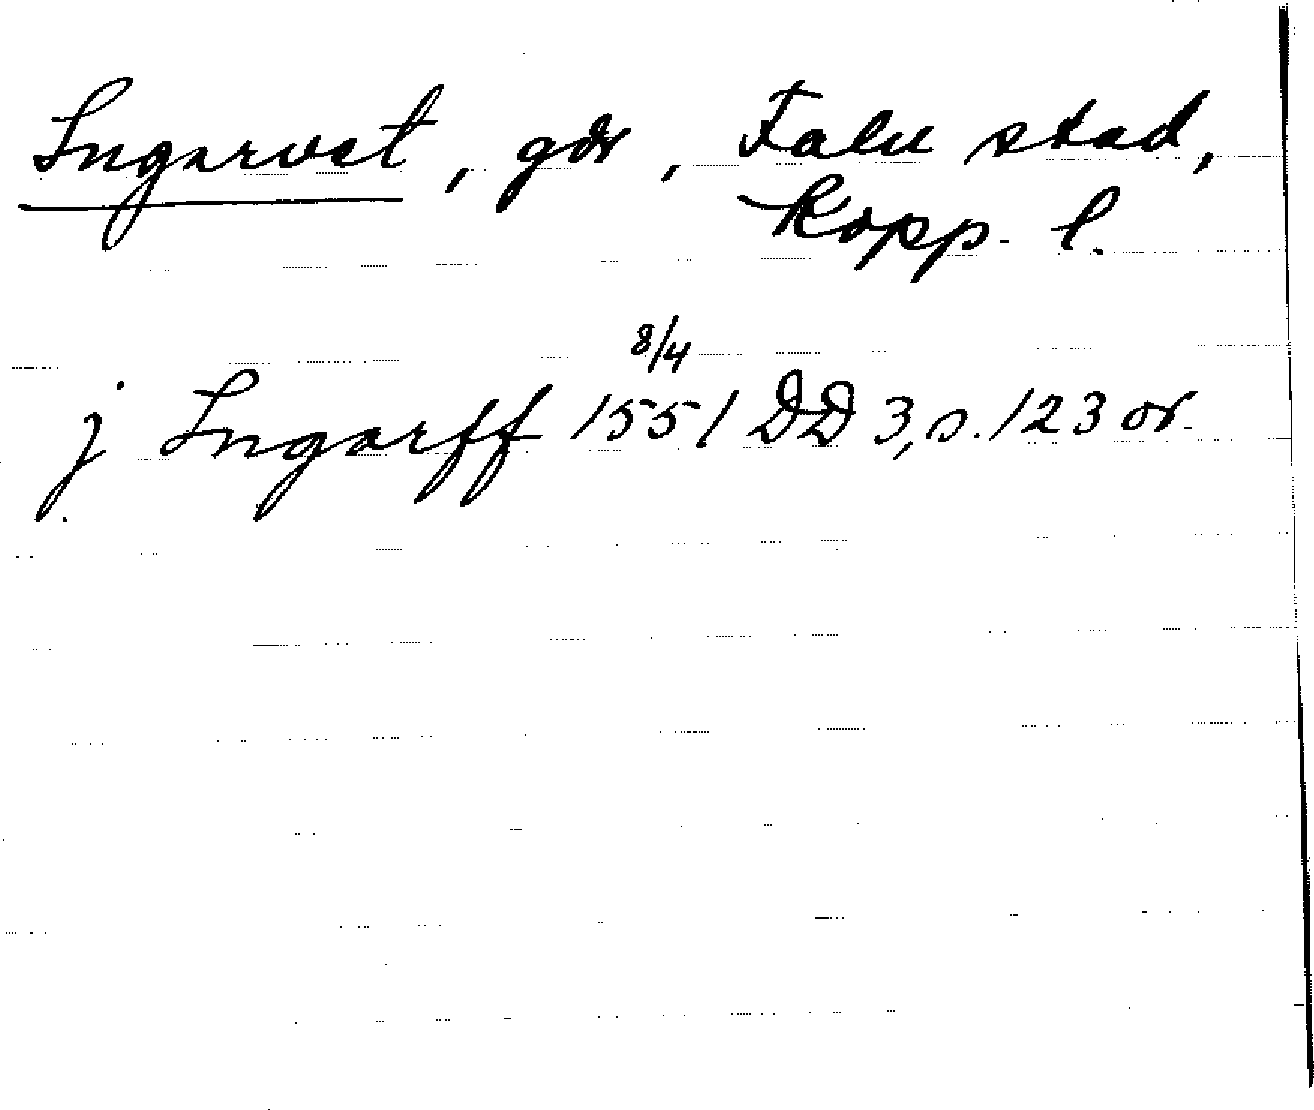 Ingarvet, gdr, Falu stad,
Kopp. l.
8/4
j Ingarff 1551 DD 3, s. 123 or.